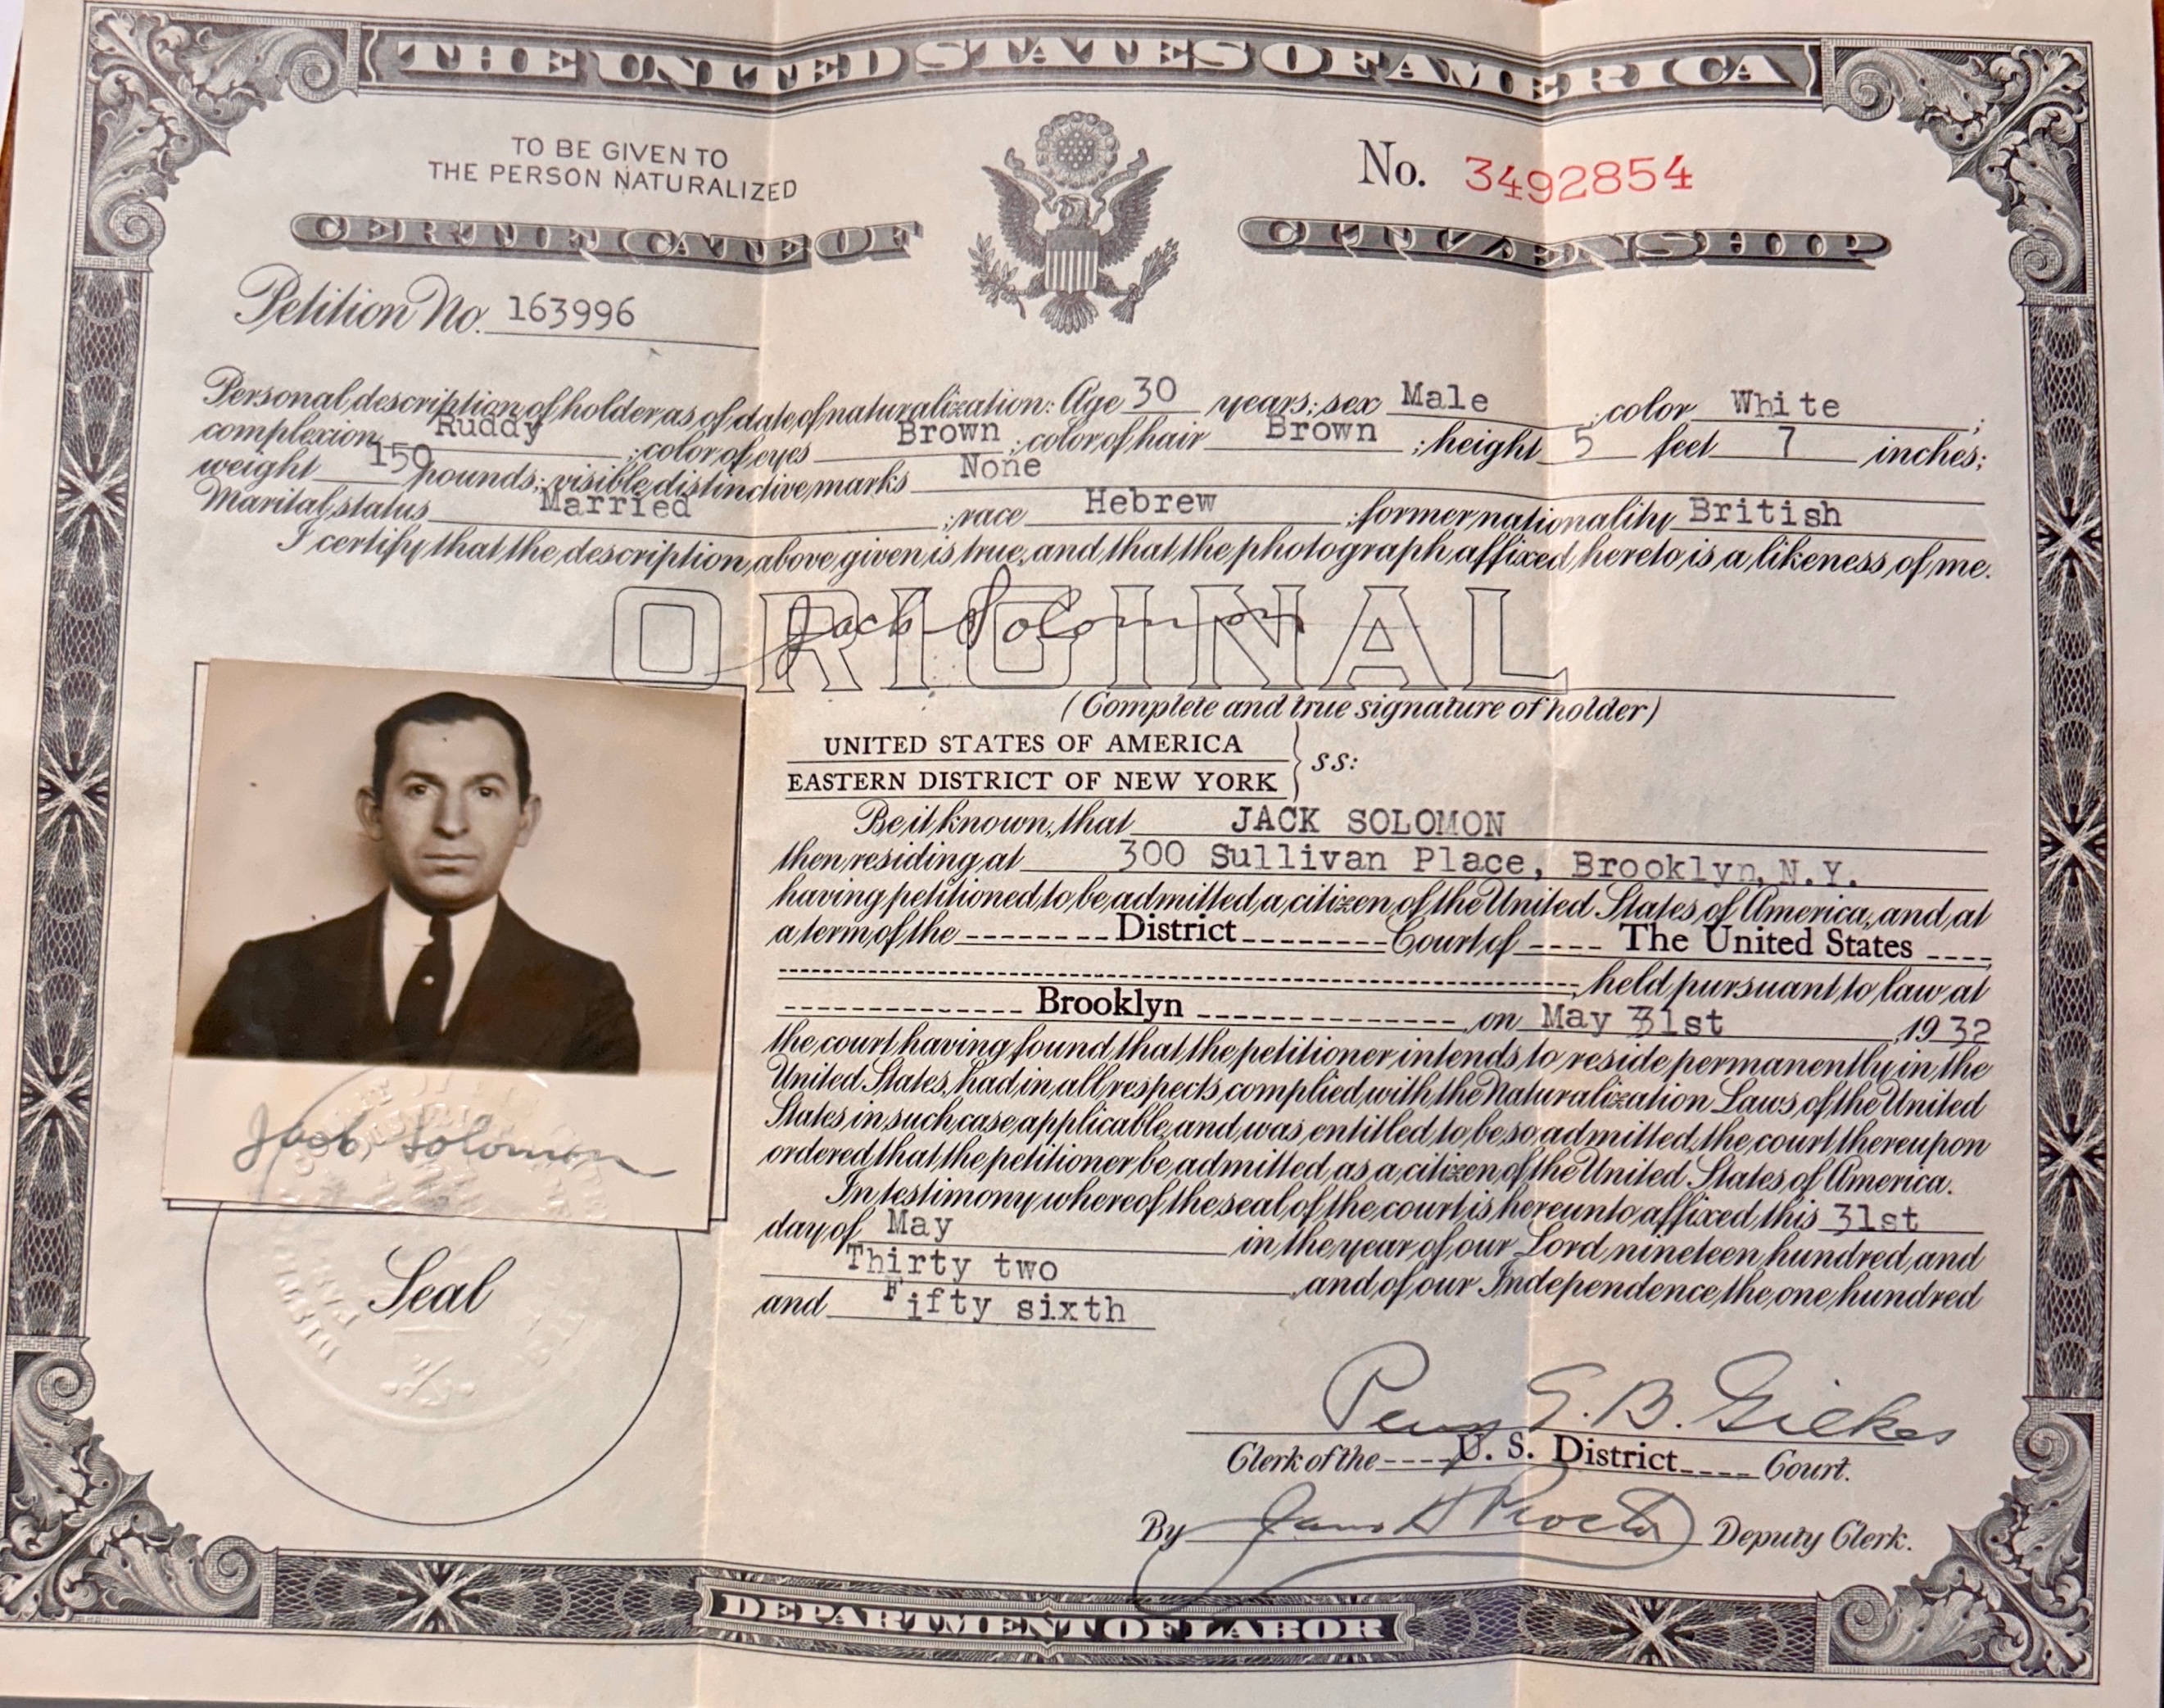 THE UNITED STATES OF AMERICA
TO BE GIVEN TO
THE PERSON NATURALIZED
No. 3492854
CERTIFICATE OF CITIZENSHIP
Petition No. 163996
Personal description of holder as of date of naturalization: Age 30 years; sex Male ; color White ;
complexion Ruddy ; color of eyes Brown ; color of hair Brown ; height 5 feet 7 inches;
weight 150 pounds; visible distinctive marks None
Marital status Married ; race Hebrew ; former nationality British
I certify that the description above given is true, and that the photograph affixed hereto is a likeness of me.
ORIGINAL
Jack Solomon
(Complete and true signature of holder)
UNITED STATES OF AMERICA
EASTERN DISTRICT OF NEW YORK
ss:
Be it known, that JACK SOLOMON
then residing at 300 Sullivan Place, Brooklyn, N.Y.
having petitioned to be admitted a citizen of the United States of America, and at
a term of the District Court of The United States
held pursuant to law at
Brooklyn on May 31st 1932
the court having found that the petitioner intends to reside permanently in the
United States, had in all respects complied with the Naturalization Laws of the United
States in such case applicable, and was entitled to be so admitted, the court thereupon
ordered that the petitioner be admitted as a citizen of the United States of America.
In testimony whereof the seal of the court is hereunto affixed this 31st
day of May in the year of our Lord nineteen hundred and
Thirty two and of our Independence the one hundred
and Fifty sixth
Jack Solomon
Seal
Percy G. B. Gilkes
Clerk of the U. S. District Court.
By Deputy Clerk.
DEPARTMENT OF LABOR